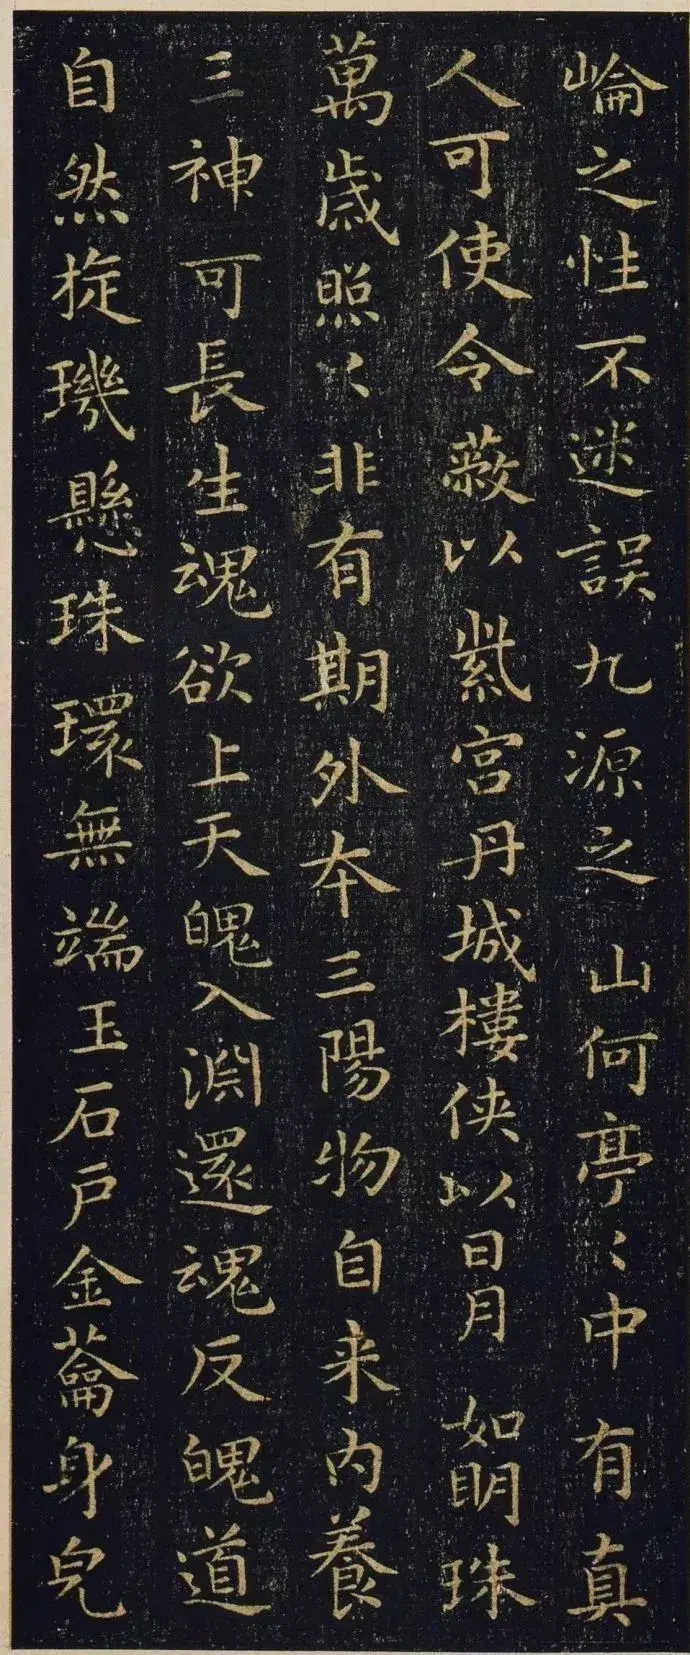 崘之性不迷誤九源之山何亭〻中有真
人可使令蔽以紫宮丹城樓侠以日月如明珠
萬歲照〻非有期外本三陽物自来内養
三神可長生魂欲上天魄入淵還魂反魄道
自然㨔璣懸珠環無端玉石戶金蘥身皃